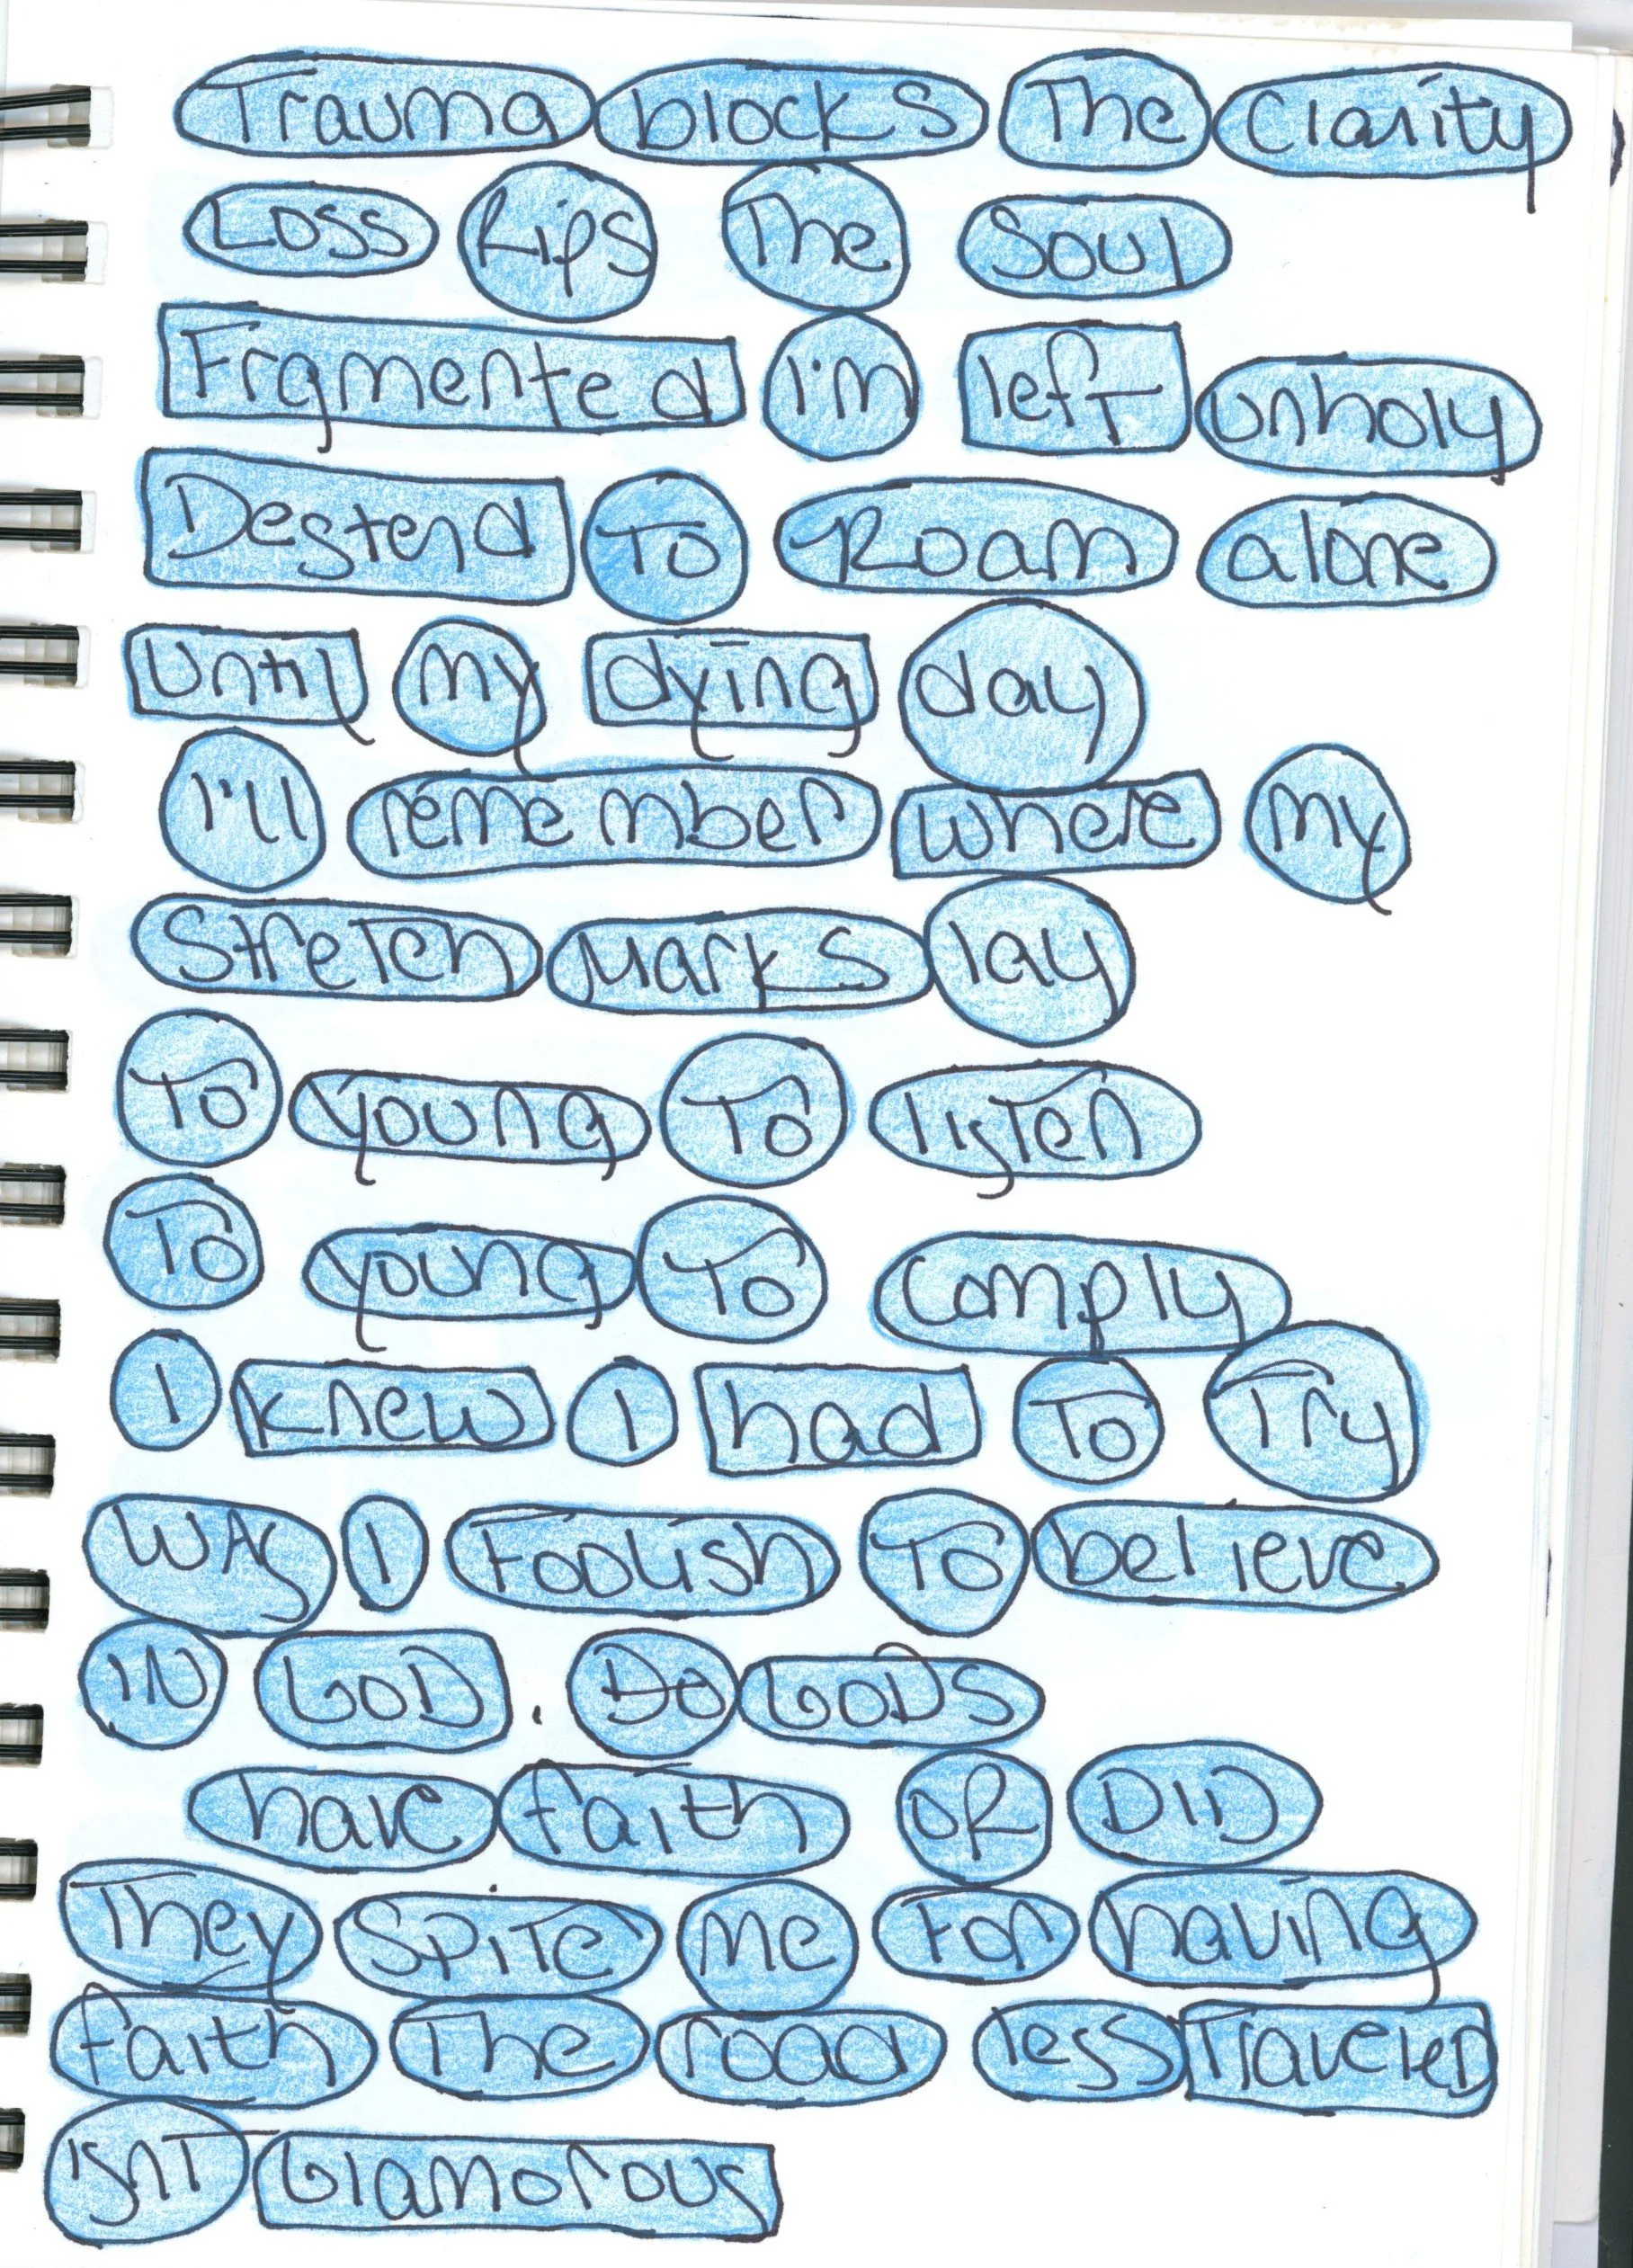 Trauma blocks The Clarity
Loss Rips The Soul
Frgmented I'm left unholy
Destend To Roam alone
Until my dying day
I'll remember where my
Stretch Marks lay
To young To listen
To young To comply
I knew I had To Try
WAS I Foolish To believe
IN GOD. DO GODS
have faith OR DID
They Spite Me For having
faith The road less Traveled
ISNT Glamorous